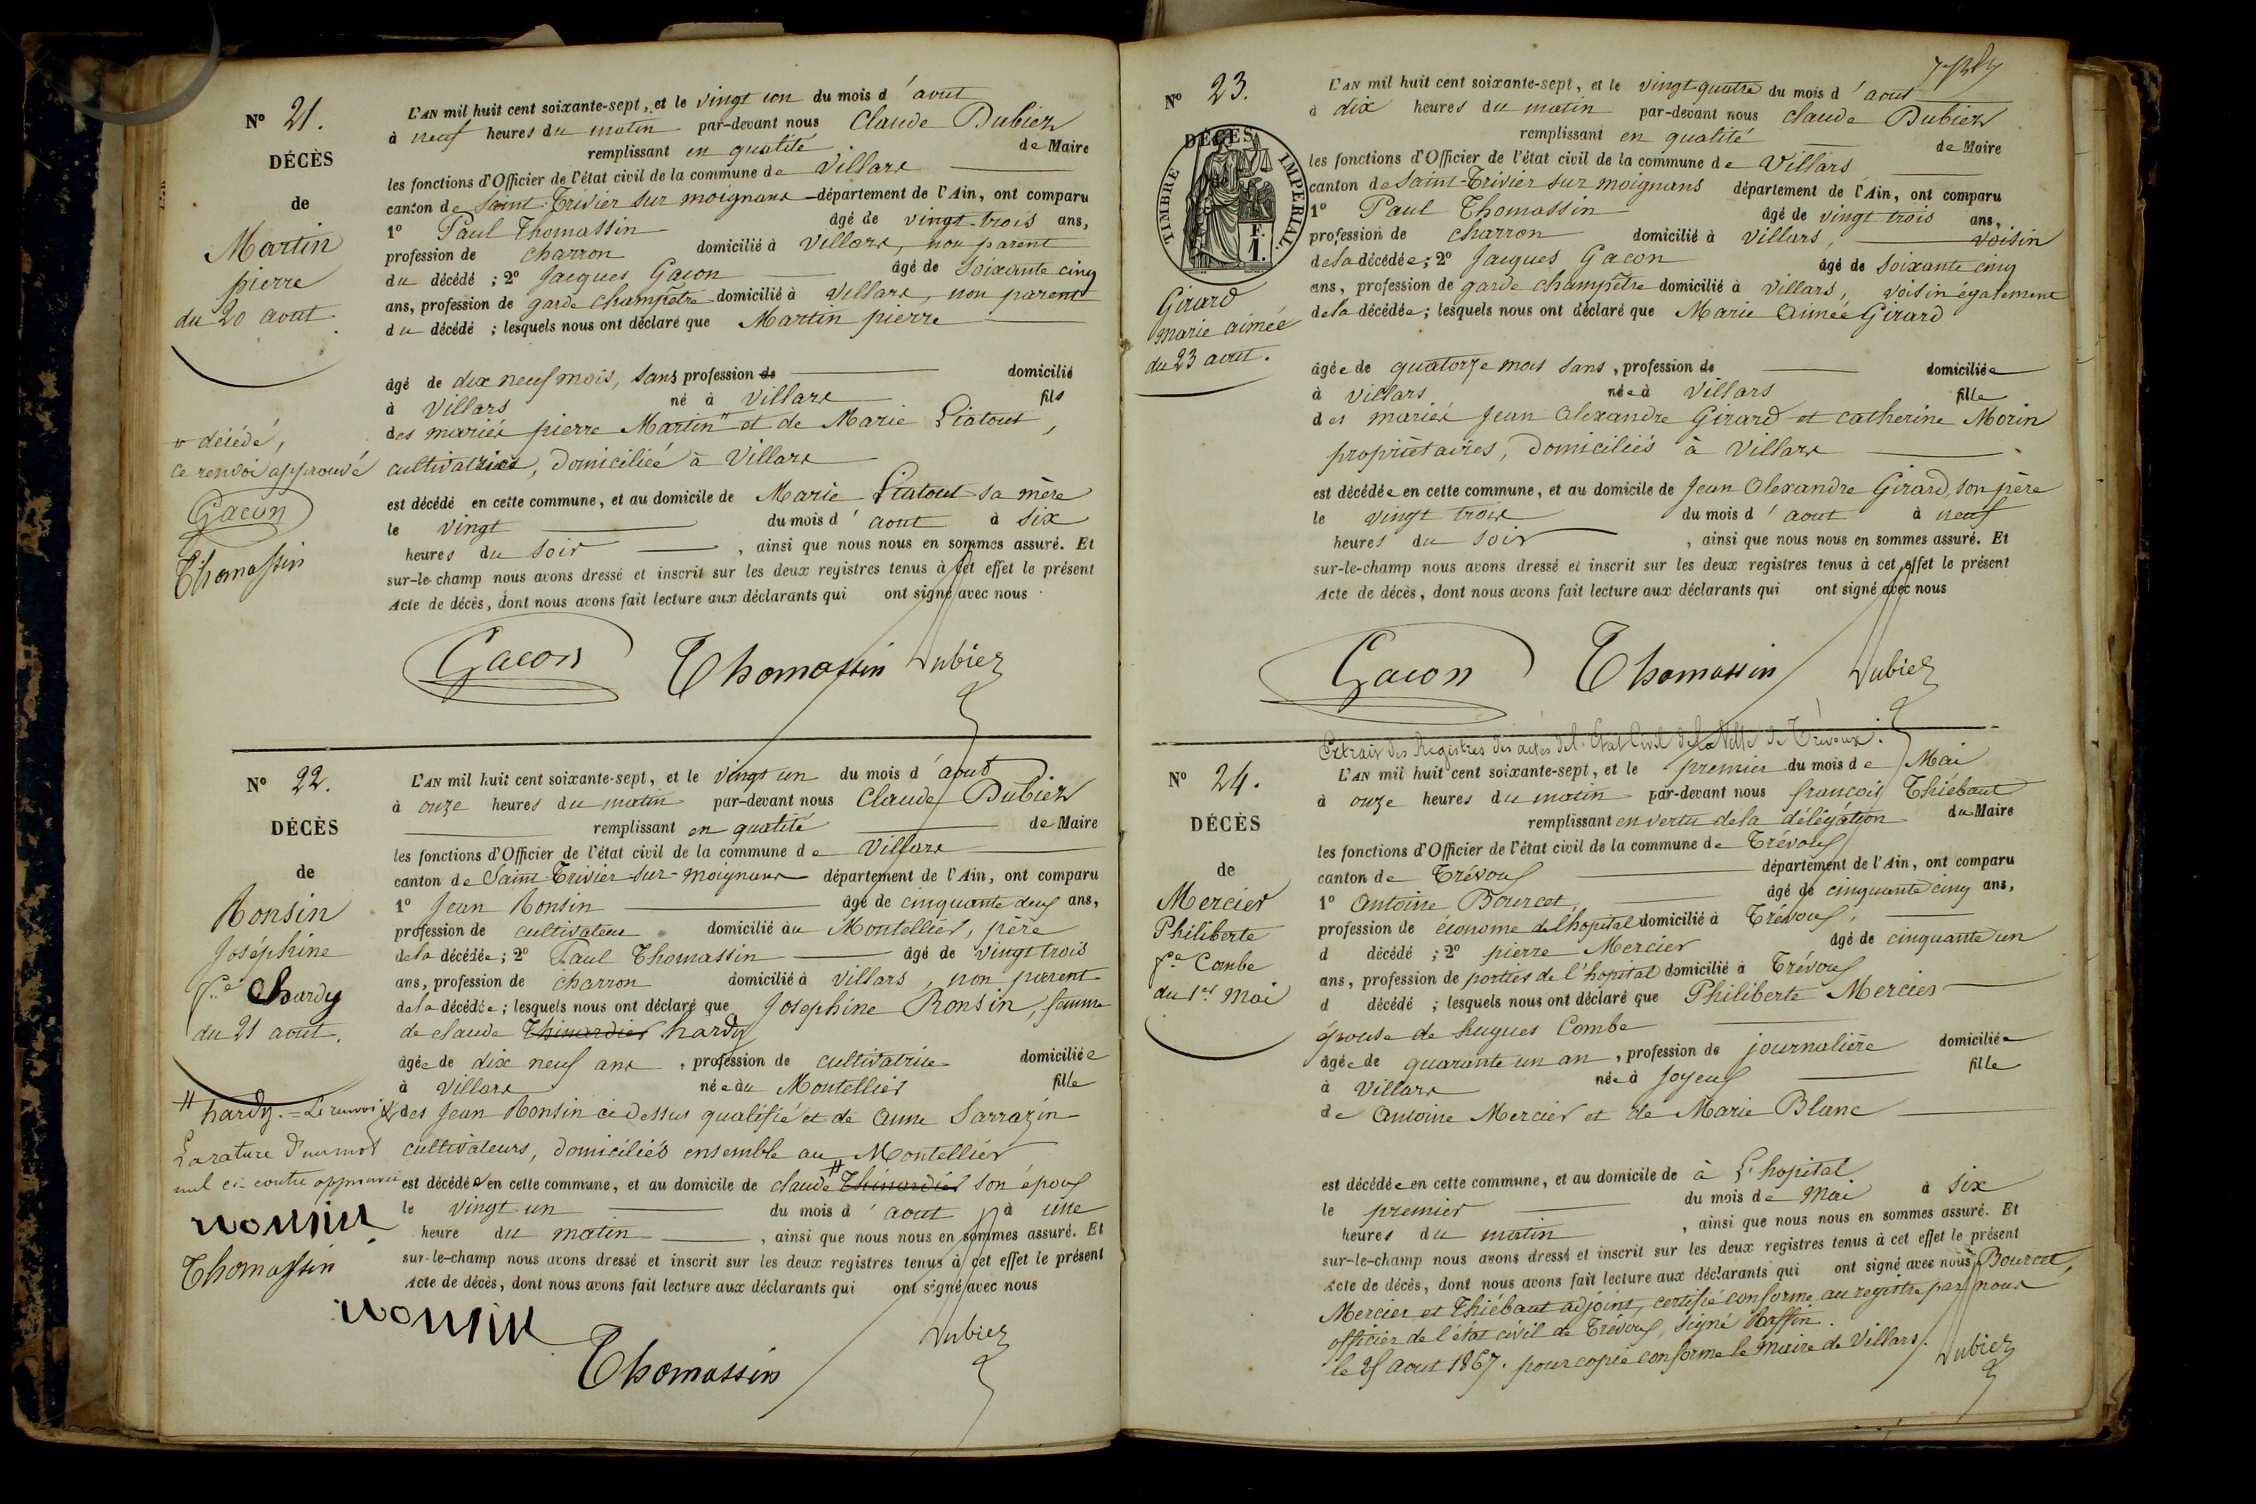 N° 21.
DÉCÈS
de
Martin
pierre
du 20 aout
L'AN mil huit cent soixante-sept, et le vingt un du mois d'aout
à neuf heures du matin par-devant nous Claude Dubiez
remplissant en qualité de Maire
les fonctions d'Officier de l'état civil de la commune de Villars
canton de Saint-Trivier sur moignans département de l'Ain, ont comparu
1° Paul Thomassin âgé de vingt trois ans,
profession de charron domicilié à Villars, non parent
du décédé ; 2° Jacques Gacon âgé de soixante cinq
ans, profession de garde champêtre domicilié à Villars, non parent
du décédé ; lesquels nous ont déclaré que Martin pierre
âgé de dix neuf mois, sans profession de domicilié
à Villars né à Villars fils
des mariés pierre Martin " et de Marie Liatout,
cultivatrice, domiciliée à Villars
est décédé en cette commune, et au domicile de Marie Liatout sa mère
le vingt du mois d'aout à six
heures du soir, ainsi que nous nous en sommes assuré. Et
sur-le-champ nous avons dressé et inscrit sur les deux registres tenus à cet effet le présent
Acte de décès, dont nous avons fait lecture aux déclarants qui ont signé avec nous
" décédé,
ce renvoi approuvé
Gacon
Thomassin
Gacon Thomassin Dubiez
N° 22.
DÉCÈS
de
Ronsin
Joséphine
fe hardy
du 21 aout.
L'AN mil huit cent soixante-sept, et le vingt un du mois d'aout
à onze heures du matin par-devant nous Claude Dubiez
remplissant en qualité de Maire
les fonctions d'Officier de l'état civil de la commune de Villars
canton de Saint-Trivier-sur-moignans département de l'Ain, ont comparu
1° Jean Ronsin âgé de cinquante deux ans,
profession de cultivateur domicilié au Montellier, père
de la décédée ; 2° Paul Thomassin âgé de vingt trois
ans, profession de charron domicilié à Villars, non parent
de la décédée ; lesquels nous ont déclaré que Joséphine Ronsin, femme
de claude Thimardier hardy
âgée de dix neuf ans, profession de cultivatrice domiciliée
à Villars née au Montellier fille
des Jean Ronsin ci dessus qualifié et de Anne Sarrazin
cultivateurs, domiciliés ensemble au Montellier
est décédée en cette commune, et au domicile de claude " Thimardier son époux
le vingt un du mois d'aout à une
heure du matin, ainsi que nous nous en sommes assuré. Et
sur-le-champ nous avons dressé et inscrit sur les deux registres tenus à cet effet le présent
Acte de décès, dont nous avons fait lecture aux déclarants qui ont signé avec nous
" hardy. = Le renvoi &
La rature d'un mot
nul ci-contre approuvé
ronsin
Thomassin
ronsin
Thomassin Dubiez
N° 23.
DÉCÈS
de
TIMBRE IMPERIAL.
F.
1.
Girard
marie aimée
du 23 aout.
L'AN mil huit cent soixante-sept, et le vingt quatre du mois d'aout
à dix heures du matin par-devant nous claude Dubiez
remplissant en qualité de Maire
les fonctions d'Officier de l'état civil de la commune de Villars
canton de Saint-Trivier sur moignans département de l'Ain, ont comparu
1° Paul Thomassin âgé de vingt trois ans,
profession de charron domicilié à Villars, voisin
de la décédée ; 2° Jacques Gacon âgé de soixante cinq
ans, profession de garde champêtre domicilié à Villars, voisin également
de la décédée ; lesquels nous ont déclaré que Marie Aimée Girard
âgée de quatorze mois sans, profession de domiciliée
à Villars née à Villars fille
des mariés Jean Alexandre Girard et catherine Morin
propriétaires, domiciliés à Villars
est décédée en cette commune, et au domicile de Jean Alexandre Girard, son père
le vingt trois du mois d'aout à neuf
heures du soir, ainsi que nous nous en sommes assuré. Et
sur-le-champ nous avons dressé et inscrit sur les deux registres tenus à cet effet le présent
Acte de décès, dont nous avons fait lecture aux déclarants qui ont signé avec nous
Gacon Thomassin Dubiez
Extrait des Registres des actes de l'Etat Civil de la Ville de Trévoux.
N° 24.
DÉCÈS
de
Mercier
Philiberte
fe Combe
du 1er Mai
L'AN mil huit cent soixante-sept, et le premier du mois de Mai
à onze heures du matin par-devant nous françois Thiébaut
remplissant en vertu de la délégation du Maire
les fonctions d'Officier de l'état civil de la commune de Trévoux
canton de Trévoux département de l'Ain, ont comparu
1° Antoine Bourcet âgé de cinquante cinq ans,
profession de économe de l'hopital domicilié à Trévoux,
d décédé ; 2° pierre Mercier âgé de cinquante un
ans, profession de portier de l'hopital domicilié à Trévoux
d décédé ; lesquels nous ont déclaré que Philiberte Mercier
épouse de hugues Combe
âgée de quarante un an, profession de journalière domiciliée
à Villars née à Joyeux fille
de Antoine Mercier et de Marie Blanc
est décédée en cette commune, et au domicile de à L'hopital
le premier du mois de Mai à six
heures du matin, ainsi que nous nous en sommes assuré. Et
sur-le-champ nous avons dressé et inscrit sur les deux registres tenus à cet effet le présent
Acte de décès, dont nous avons fait lecture aux déclarants qui ont signé avec nous Bourcet,
Mercier et Thiébaut adjoint, certifié conforme au registre par nous
officier de l'état civil de Trévoux, signé Raffin.
le 25 aout 1867. pour copie conforme le maire de Villars.
Dubiez